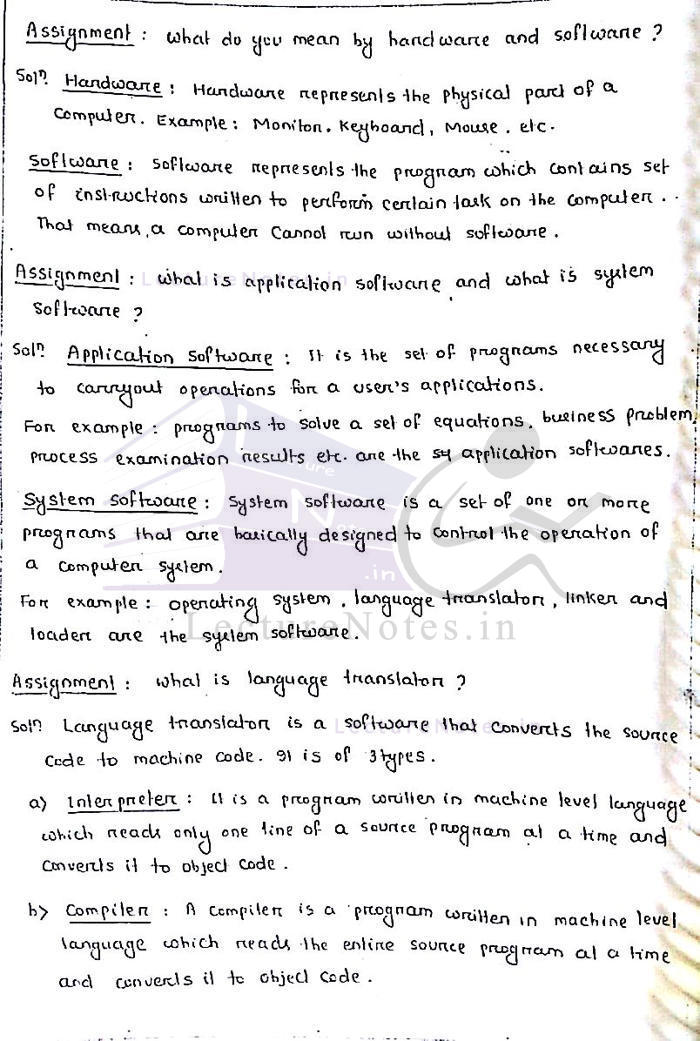 Assignment : what do you mean by hardware and software ?
Solⁿ. Hardware : Hardware represents the physical part of a
computer. Example : Monitor, Keyboard, Mouse, etc.
Software : Software represents the program which contains set
of instructions written to perform certain task on the computer.
That means, a computer cannot run without software.
Assignment : what is application software, and what is system
software ?
Solⁿ. Application software : It is the set of programs necessary
to carryout operations for a user's applications.
For example : programs to solve a set of equations, business problem,
process examination results etc. are the sy application softwares.
System software : System software is a set of one or more
programs that are basically designed to control the operation of
a computer system.
For example : operating system, language translator, linker and
loader are the system software.
LectureNotes.in
Assignment : what is language translator ?
Solⁿ. Language translator is a software that converts the source
code to machine code. It is of 3 types.
a) Interpreter : It is a program written in machine level language
which reads only one line of a source program at a time and
converts it to object code.
b) Compiler : A compiler is a program written in machine level
language which reads the entire source program at a time
and converts it to object code.